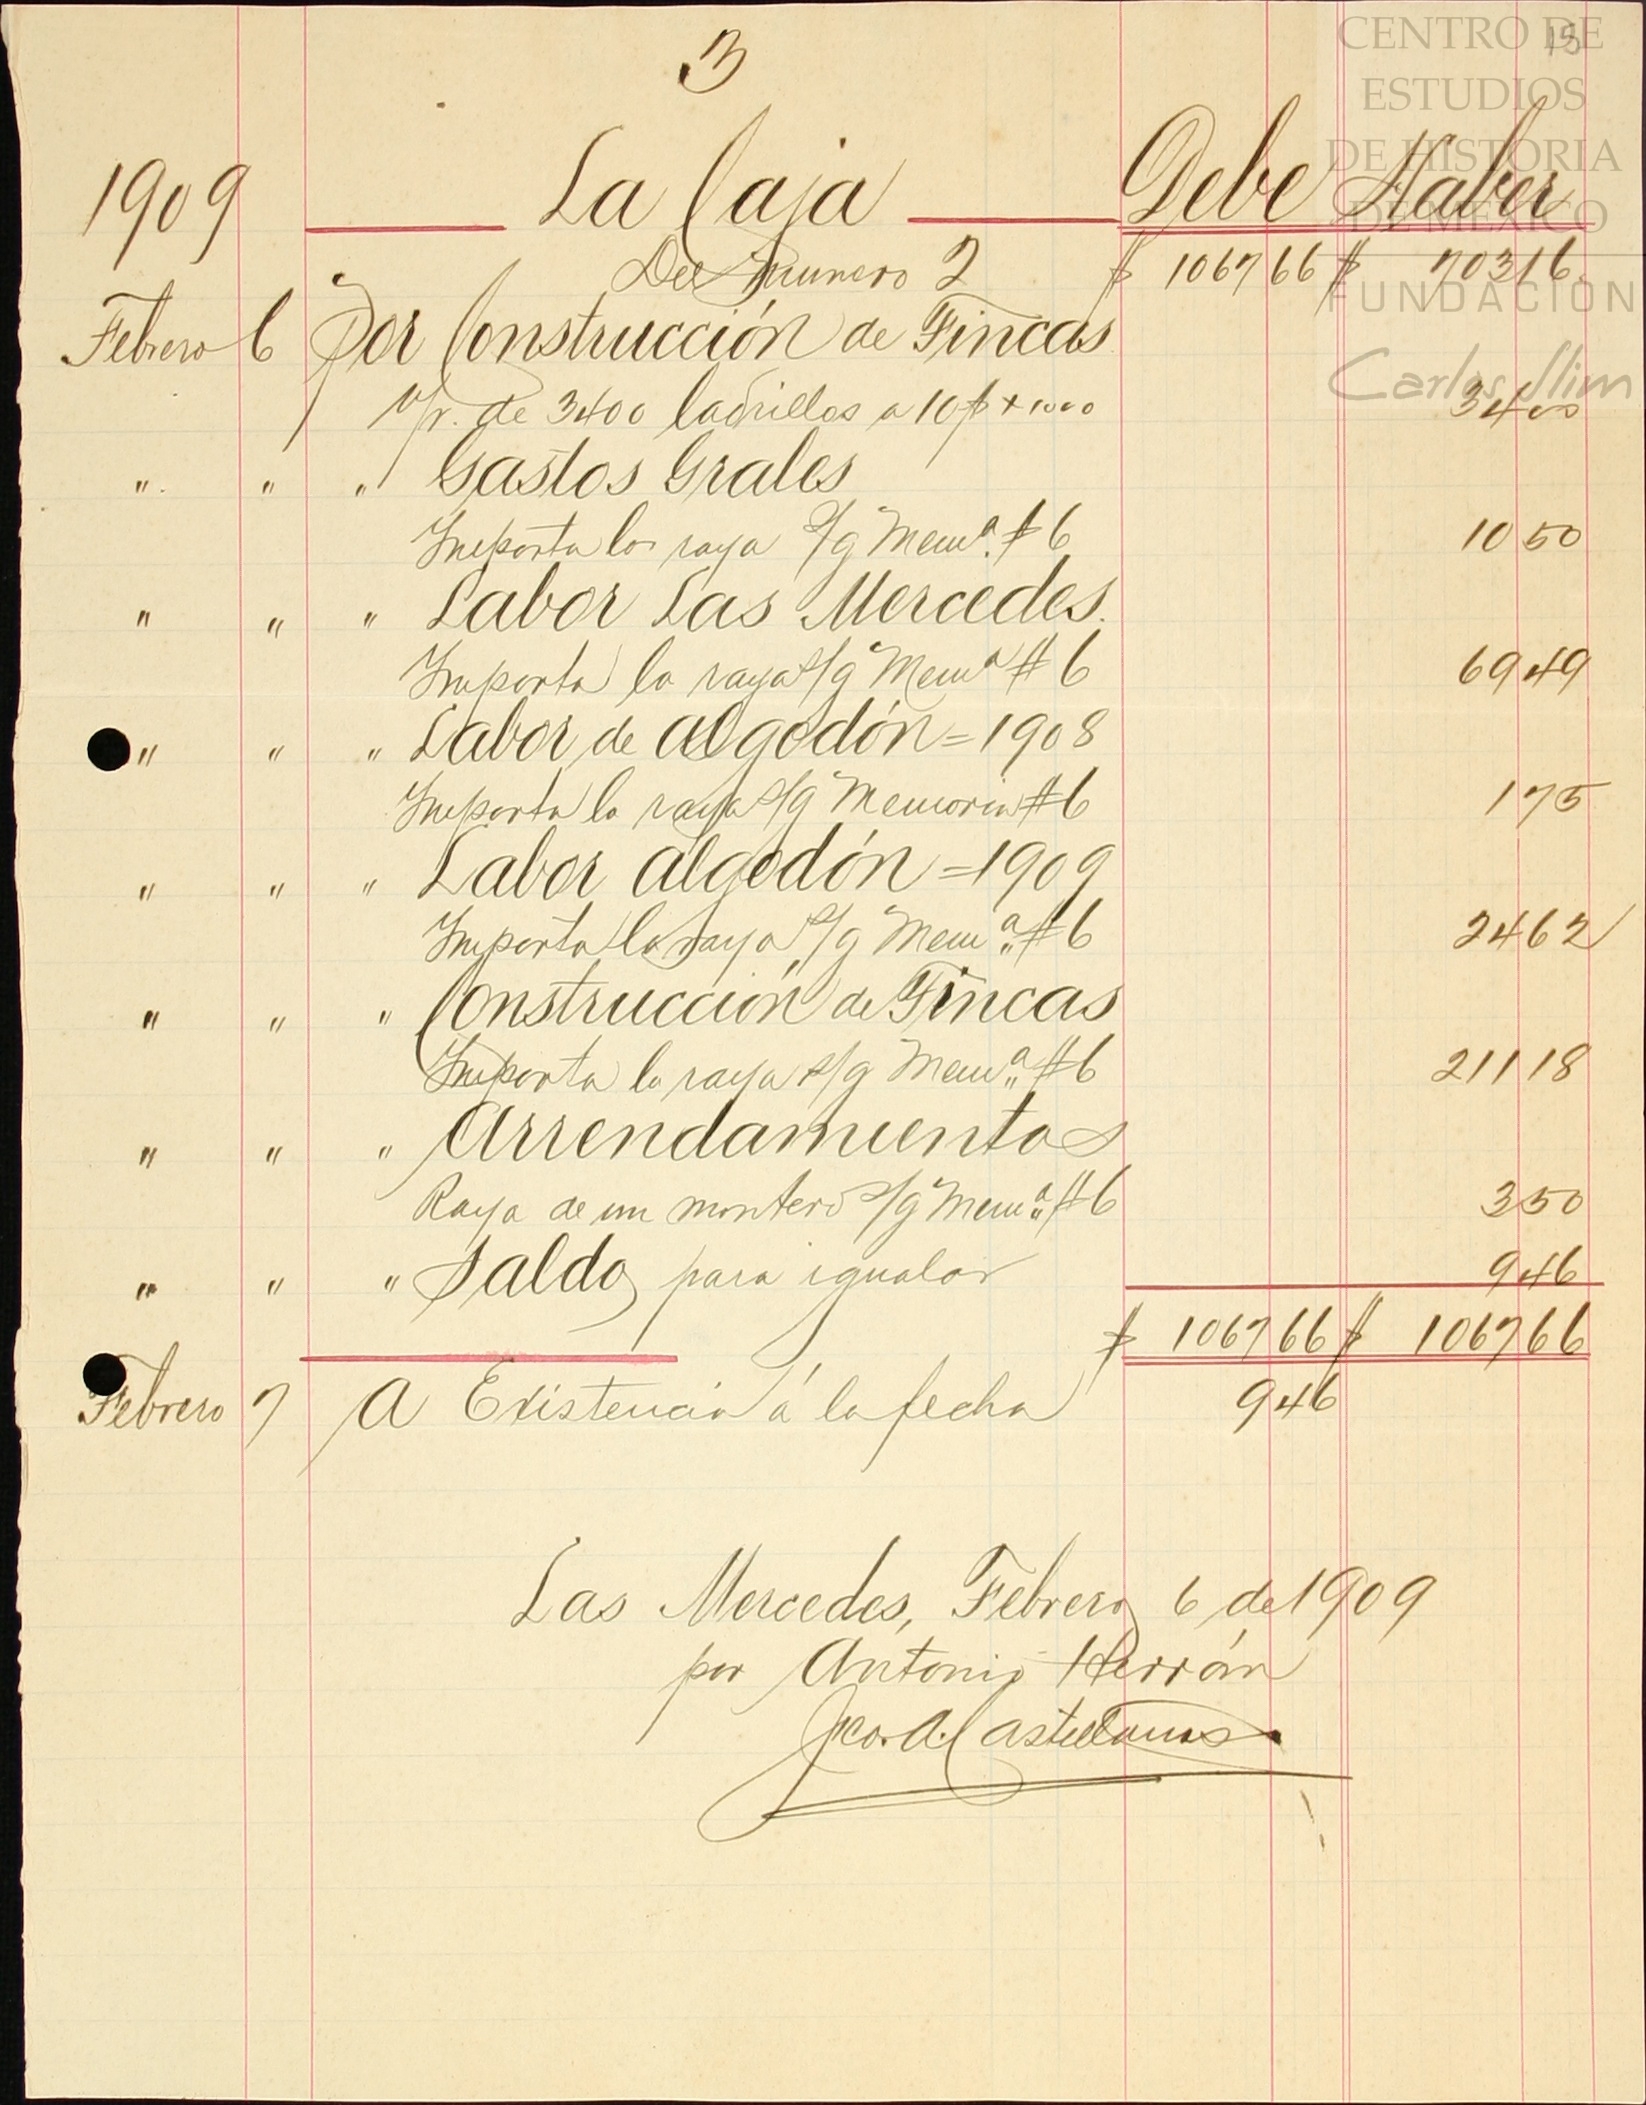 3
15
CENTRO DE
ESTUDIOS
DE HISTORIA
DE MÉXICO
FUNDACIÓN
Carlos Slim
1909 La Caja Debe Haber
Del número 2 $ 1067 66 $ 703 16
Febrero 6 Por Construcción de Fincas
Vr. de 3400 ladrillos a 10 $ x 1000 34 00
" " " Gastos Grales
Importa la raya s/g Mem.ª # 6 10 50
" " " Labor Las Mercedes.
Importa la raya s/g Mem.ª # 6 69 49
" " " Labor de algodón = 1908
Importa la raya s/g Memoria # 6 1 75
" " " Labor algodón = 1909
Importa la raya s/g Mem.ª # 6 24 62
" " " Construcción de Fincas
Importa la raya s/g Mem.ª # 6 211 18
" " " Arrendamientos
Raya de un montero s/g Mem.ª # 6 3 50
" " " Saldo para igualar 9 46
$ 1067 66 $ 1067 66
Febrero 7 A Existencia á la fecha 9 46
Las Mercedes, Febrero 6 de 1909
por Antonio Herrán
Fco. A. Castellanos